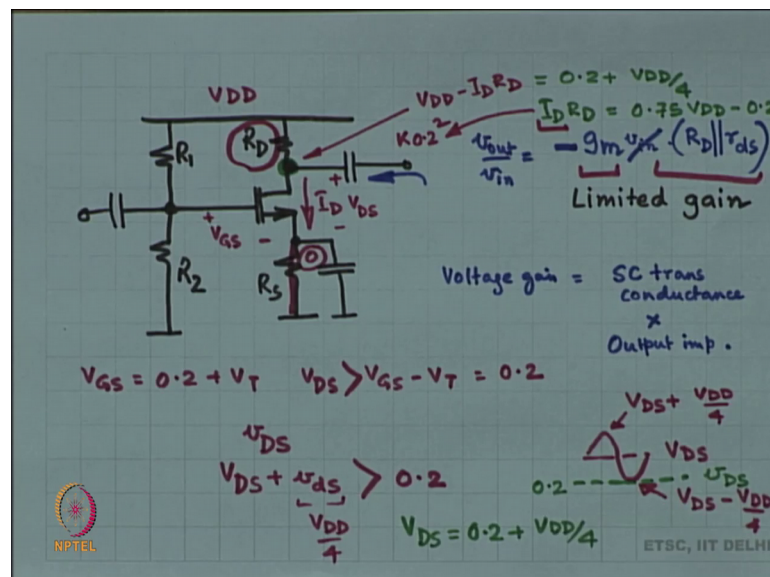 VDD
VDD - IDRD = 0.2 + VDD/4
IDRD = 0.75 VDD - 0.2
K 0.2²
RD
R1
vout/vin = - gm vin · (RD || rds)
Limited gain
+ VGS -
ID
+ VDS -
R2
RS
0
Voltage gain = SC trans
conductance
×
Output imp.
VGS = 0.2 + VT VDS > VGS - VT = 0.2
vDS
VDS + vds > 0.2
VDD/4
VDS = 0.2 + VDD/4
VDS + VDD/4
VDS
0.2
vDS
VDS - VDD/4
NPTEL
ETSC, IIT DELHI